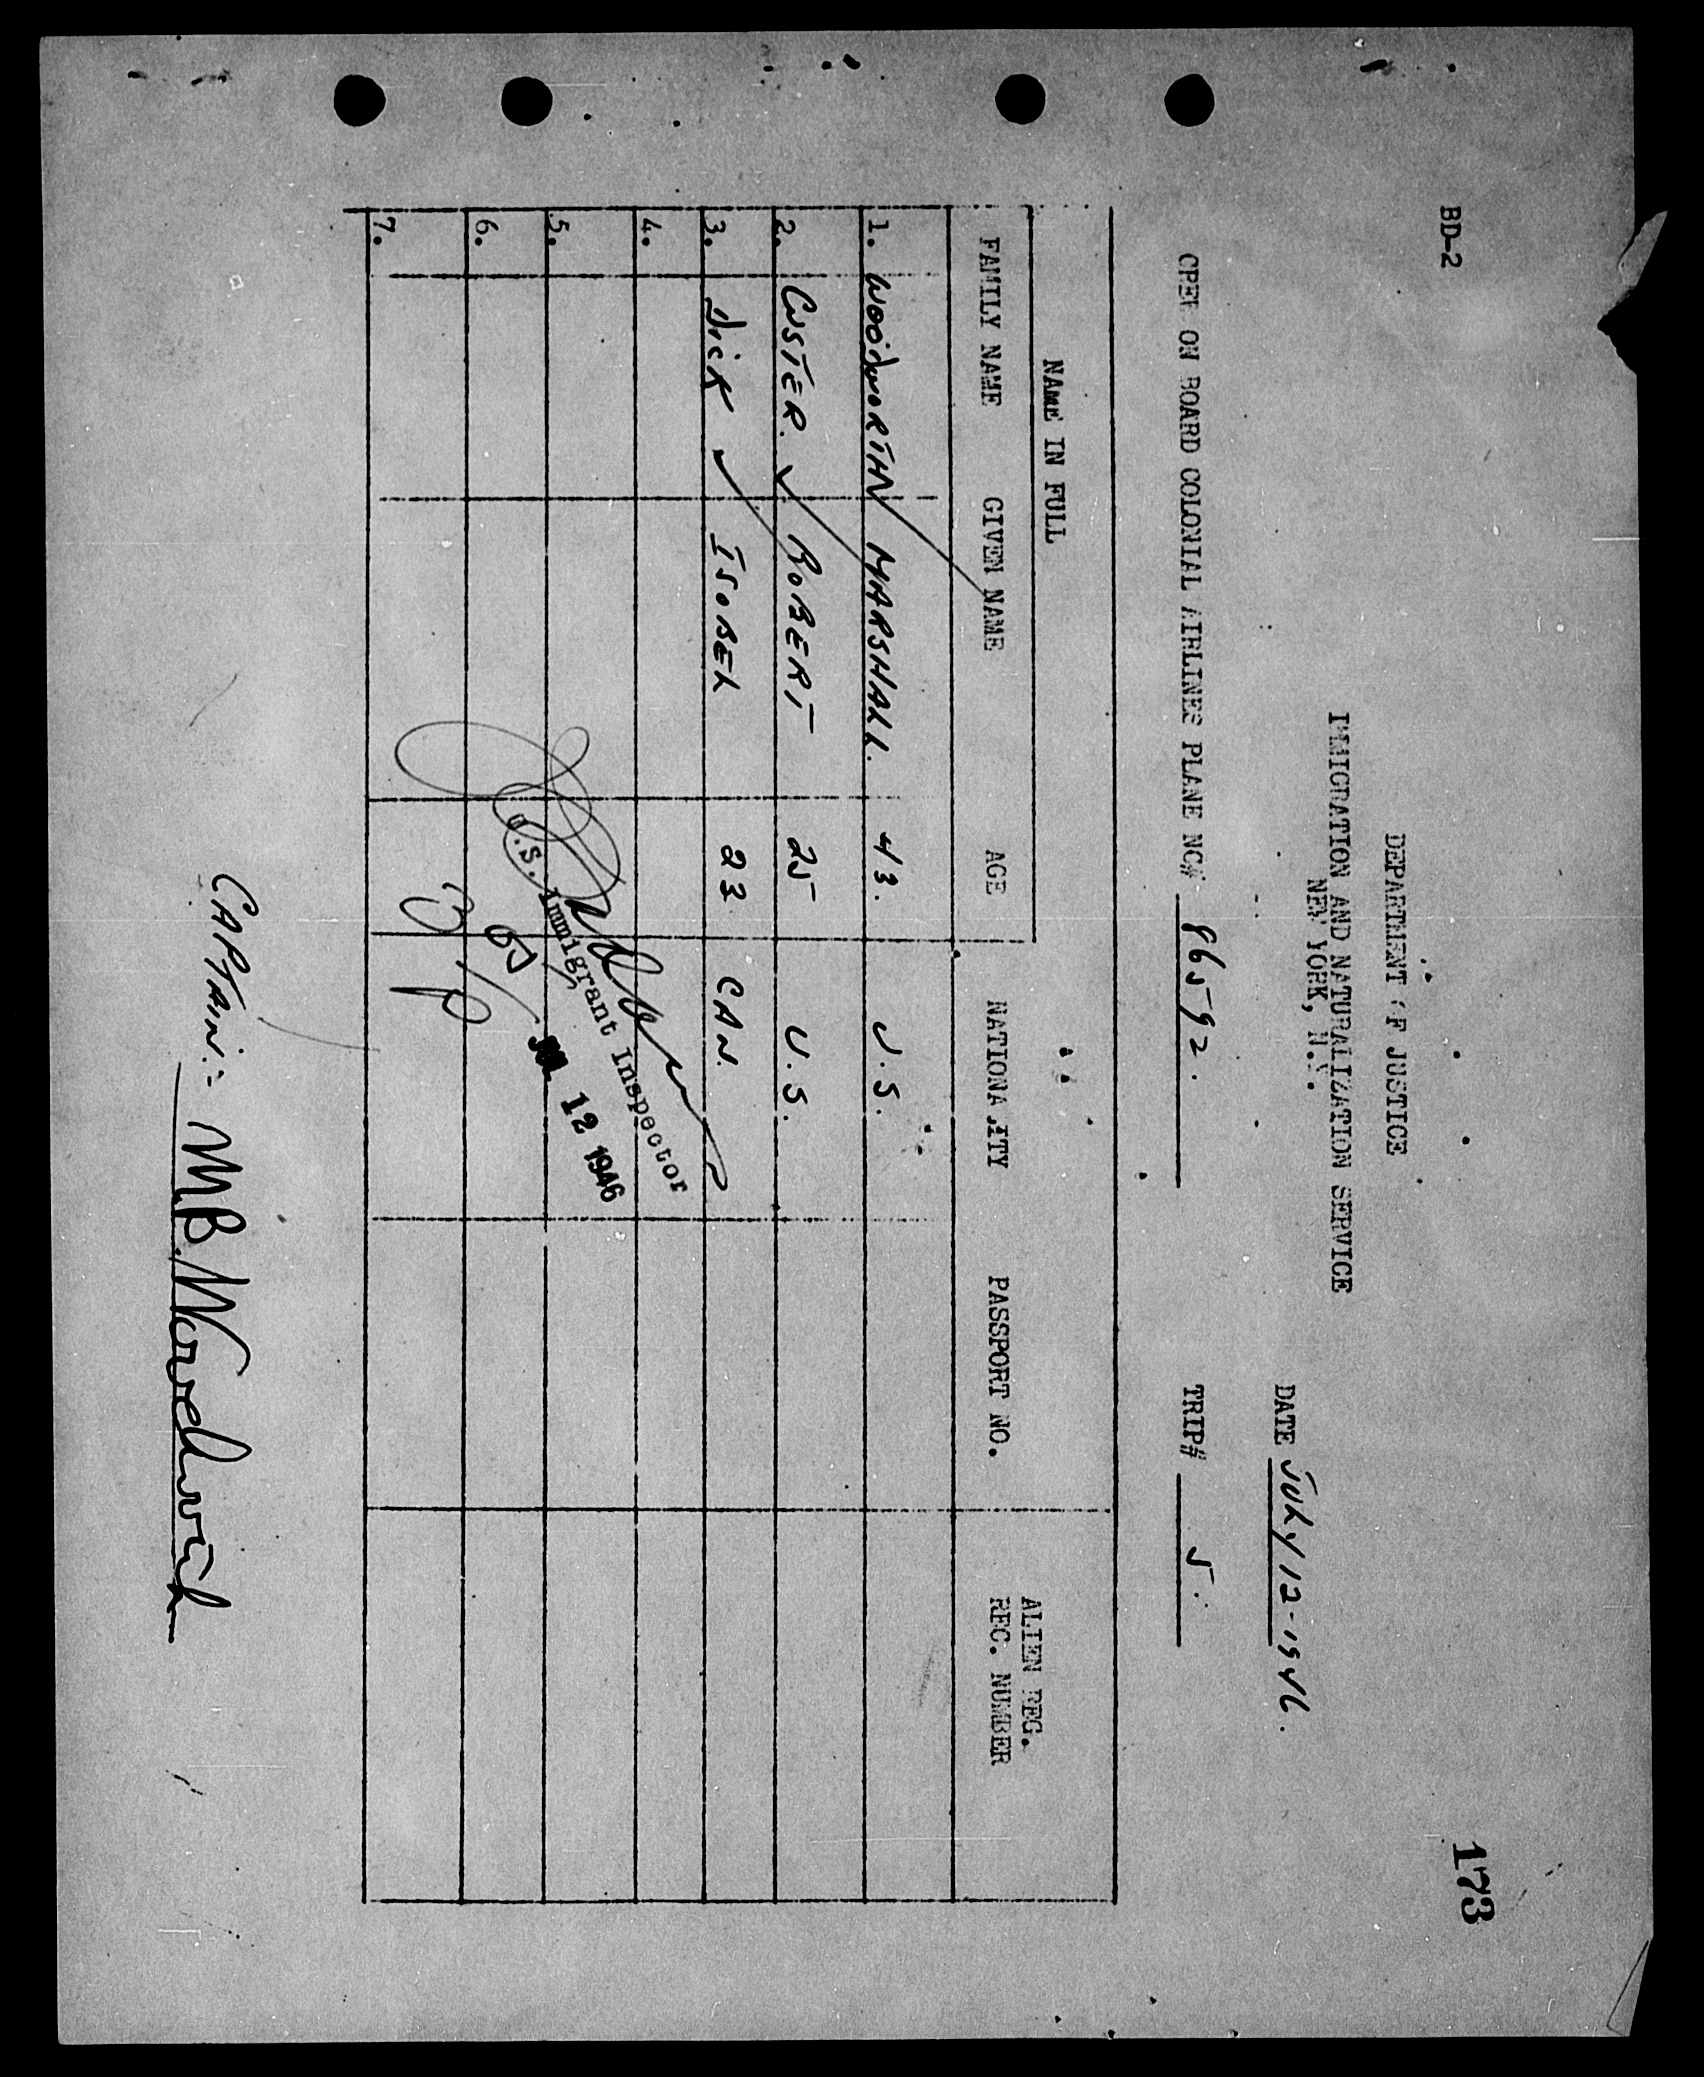 BD-2
173
DEPARTMENT OF JUSTICE
IMMIGRATION AND NATURALIZATION SERVICE
NEW YORK, N.Y.
DATE July 12-1946.
CREW ON BOARD COLONIAL AIRLINES PLANE NC# 86592. TRIP# 5.
NAME IN FULL
ALIEN REG.
FAMILY NAME GIVEN NAME AGE NATIONALITY PASSPORT NO. REC. NUMBER
1. WOODWORTH MARSHALL. 43. U.S.
2. CUSTER. ROBERT 25 U.S.
3. DICK ISOBEL 23 CAN.
4.
5.
6.
7.
U.S. Immigrant Inspector
JUL 12 1946
CAPTAIN:- M.B. Woodworth